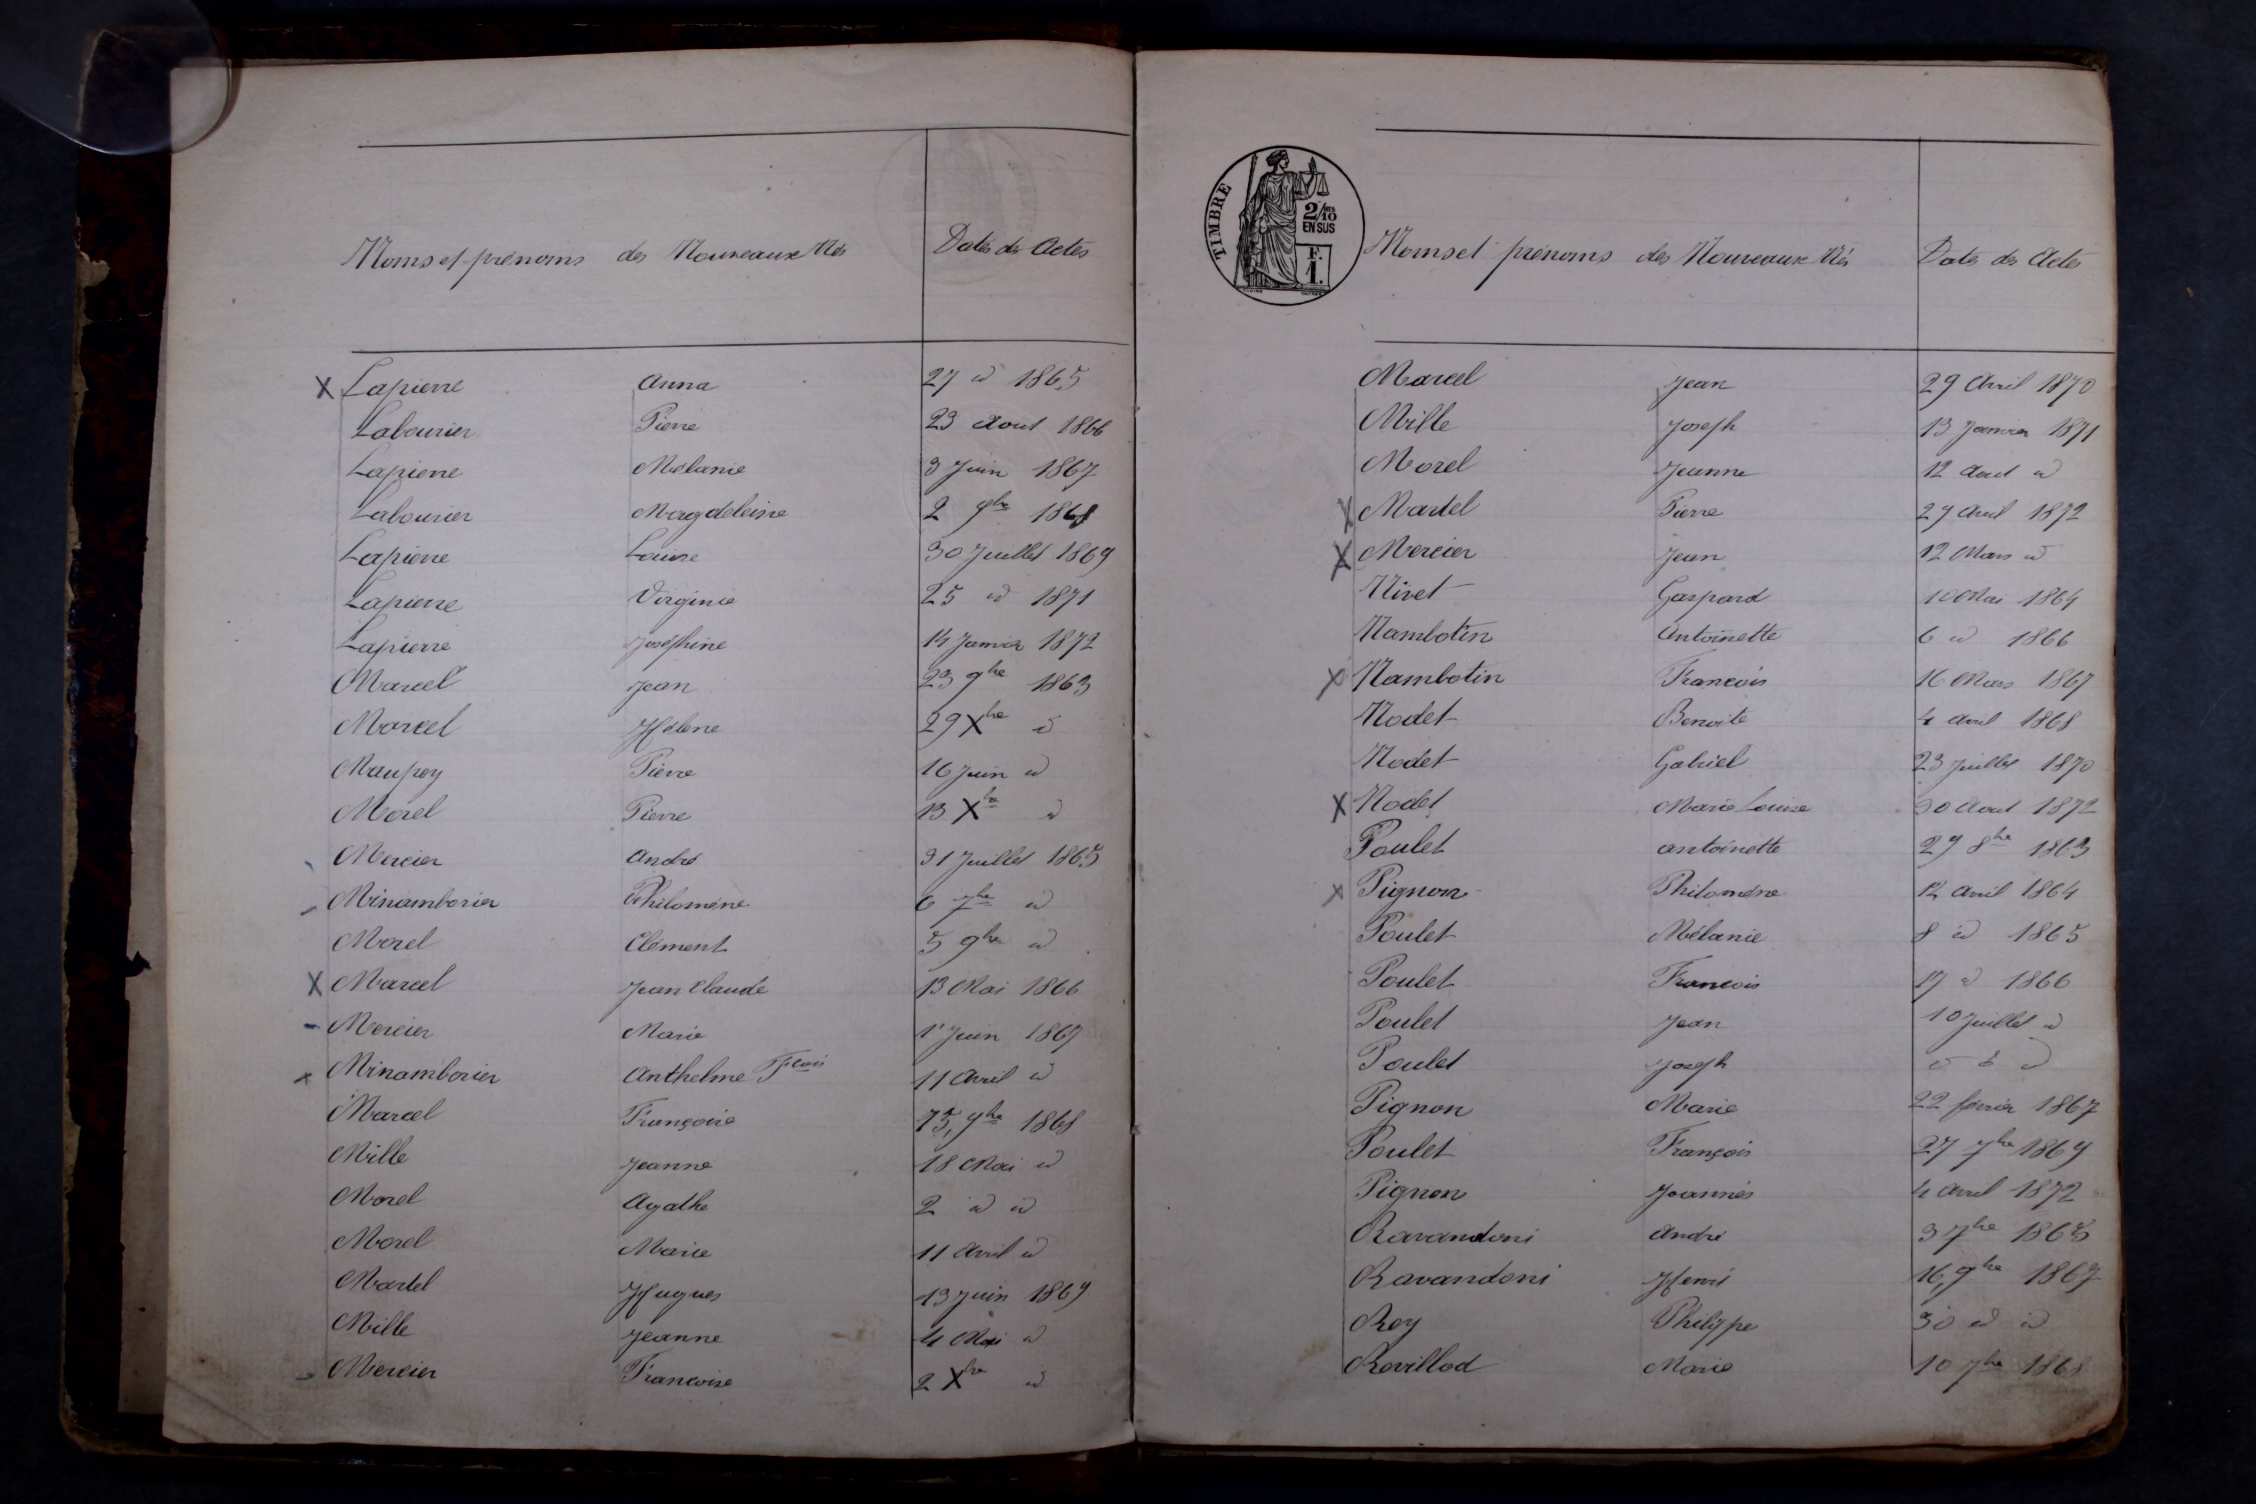 Noms et prénoms des Nouveaux Nés Dates des Actes
X Lapierre Anna 27 id 1865
Labourier Pierre 23 Aout 1866
Lapierre Mélanie 3 Juin 1867
Labourier Magdeleine 2 9bre 1868
Lapierre Louise 30 Juillet 1869
Lapierre Virginie 25 id 1871
Lapierre Joséphine 14 Janvier 1872
Marcel Jean 23 9bre 1863
Marcel Hélène 29 Xbre id
Maupoy Pierre 16 Juin id
Morel Pierre 13 Xbre id
Mercier André 31 Juillet 1865
Minamborier Philomène 6 7bre id
Morel Clément 5 9bre id
X Marcel Jean Claude 13 Mai 1866
Mercier Marie 1r Juin 1867
x Minamborier Anthelme Fcois 11 Avril id
Marcel Françoise 9bre 1868
Mille Jeanne 18 Mai id
Morel Agathe 2 id id
Morel Marie 11 Avril id
Martel Hugues 13 Juin 1869
Mille Jeanne 4 Mai id
Mercier Francoise 2 Xbre id
TIMBRE
2/10es
EN SUS
F.
1.
Noms et prénoms des Nouveaux Nés Dates des Actes
Marcel Jean 29 Avril 1870
Mille Joseph 13 Janvier 1871
Morel Jeanne 12 Aout id
X Martel Pierre 27 Avril 1872
X Mercier Jean 12 Mars id
Nivet Gaspard 10 Mai 1864
Nambotin Antoinette 6 id 1866
X Nambotin Francois 16 Mars 1867
Nodet Benoite 4 Avril 1868
Nodet Gabriel 23 Juillet 1870
X Nodet Marie Louise 30 Aout 1872
Poulet antoinette 29 8bre 1863
X Pignon Philomène 12 Avril 1864
Poulet Mélanie 8 id 1865
Poulet Francois 17 id 1866
Poulet Jean 10 Juillet id
Poulet Joseph id id id
Pignon Marie 22 février 1867
Poulet François 27 7bre 1869
Pignon Joannès 4 Avril 1872
Ravandoni André 3 7bre 1865
Ravandoni Henri 16, 9bre 1867
Roy Philippe 30 id id
Revillod Marie 10 7bre 1868